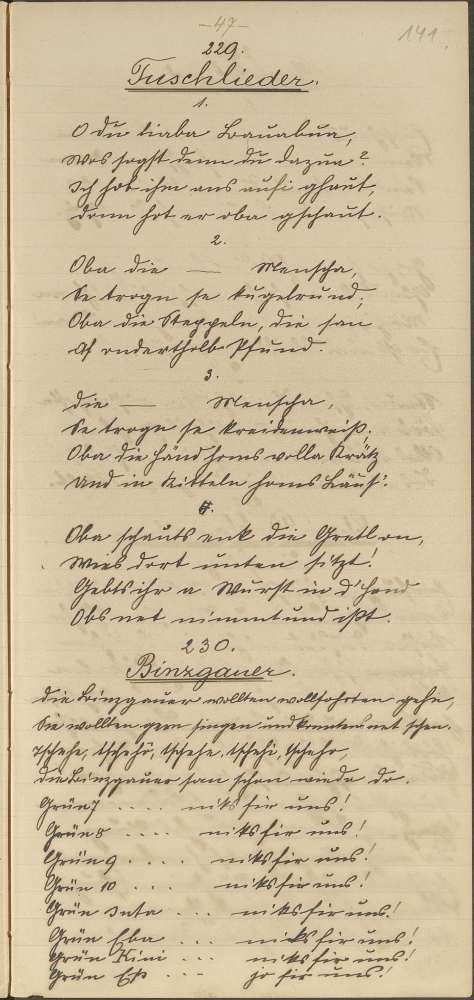 — 47 —
141.
229.
Tuschlieder.
1.
O du liaba Bauabua,
Was sagst denn du dazua?
Ich hab ihm ans aufi ghaut,
dann hat er oba gschaut.
2.
Oba die — Menscha,
Se tragn se kugelrund;
Oba die Steppeln, die san
Af anderthalb Pfund.
3.
die — Menscha,
Se tragn se kreidenweiß;
Oba die Händ hams volla Krätz
Und in Kitteln hams Läus'.
4.
Oba schauts enk die Gretl on,
Wies dort unten sitzt!
Gebts ihr a Wurst in d'Hand
Obs net nimmt und ißt.
230.
Binzgauer.
die Binzgauer wollten wallfahrten gehn,
Sie wollten gern singen und kunntens net schen.
Tschahe, tschahü, tschahe, tschahi, tschaho,
die Binzgauer san schon wieda do.
Grün 7 .... niks fir uns!
Grün 8 .... niks fir uns!
Grün 9 .... niks fir uns!
Grün 10 ... niks fir uns!
Grün Inta ... niks fir uns!
Grün Eba ... niks fir uns!
Grün Kini ... niks fir uns!
Grün Eß ... jo fir uns!